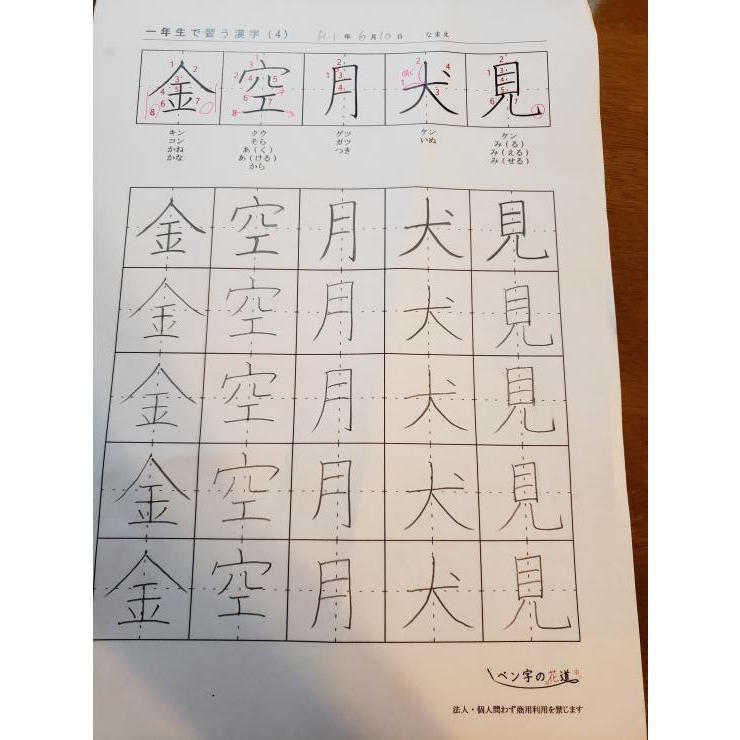 一年生で習う漢字(4) R1年6月10日 なまえ
金 空 月 犬 見
キン クウ ゲツ ケン ケン
コン そら ガツ いぬ み(る)
かね あ(く) つき み(える)
かな あ(ける) み(せる)
から
金 空 月 犬 見
金 空 月 犬 見
金 空 月 犬 見
金 空 月 犬 見
金 空 月 犬 見
ペン字の花道
法人・個人問わず商用利用を禁じます